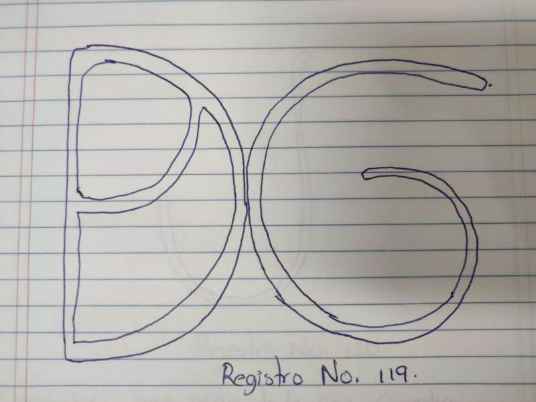 DG
Registro No. 119.